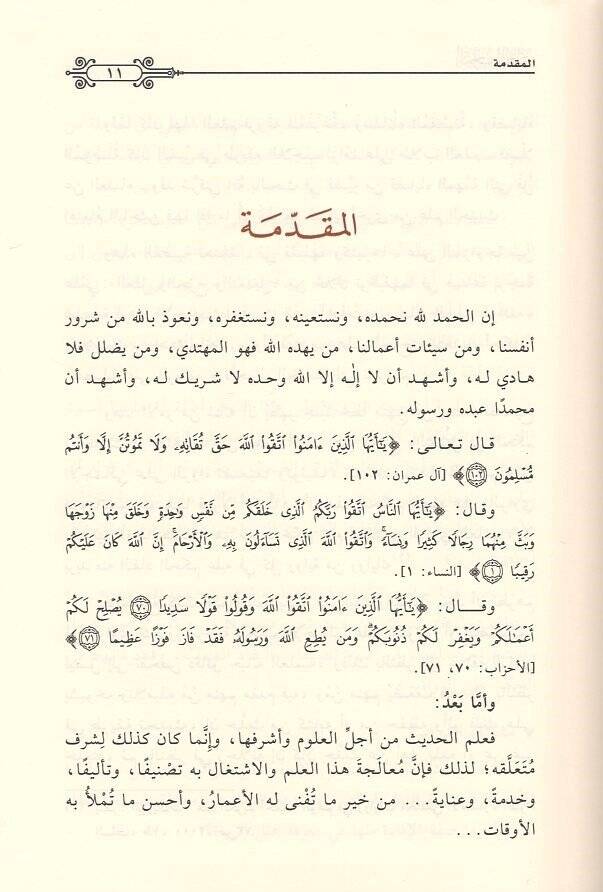 المقدمة
١١
المقَدّمَة
إن الحمد لله نحمده، ونستعينه، ونستغفره، ونعوذ بالله من شرور
أنفسنا، ومن سيئات أعمالنا، من يهده الله فهو المهتدي، ومن يضلل فلا
هادي له، وأشهد أن لا إلٰه إلا الله وحده لا شريك له، وأشهد أن
محمدًا عبده ورسوله.
قال تعالى: ﴿يَٰٓأَيُّهَا ٱلَّذِينَ ءَامَنُوا۟ ٱتَّقُوا۟ ٱللَّهَ حَقَّ تُقَاتِهِۦ وَلَا تَمُوتُنَّ إِلَّا وَأَنتُم
مُّسْلِمُونَ ١٠٢﴾ [آل عمران: ١٠٢].
وقال: ﴿يَٰٓأَيُّهَا ٱلنَّاسُ ٱتَّقُوا۟ رَبَّكُمُ ٱلَّذِى خَلَقَكُم مِّن نَّفْسٍ وَٰحِدَةٍ وَخَلَقَ مِنْهَا زَوْجَهَا
وَبَثَّ مِنْهُمَا رِجَالًا كَثِيرًا وَنِسَآءً ۚ وَٱتَّقُوا۟ ٱللَّهَ ٱلَّذِى تَسَآءَلُونَ بِهِۦ وَٱلْأَرْحَامَ ۚ إِنَّ ٱللَّهَ كَانَ عَلَيْكُمْ
رَقِيبًا ١﴾ [النساء: ١].
وقال: ﴿يَٰٓأَيُّهَا ٱلَّذِينَ ءَامَنُوا۟ ٱتَّقُوا۟ ٱللَّهَ وَقُولُوا۟ قَوْلًا سَدِيدًا ٧٠ يُصْلِحْ لَكُمْ
أَعْمَٰلَكُمْ وَيَغْفِرْ لَكُمْ ذُنُوبَكُمْ ۗ وَمَن يُطِعِ ٱللَّهَ وَرَسُولَهُۥ فَقَدْ فَازَ فَوْزًا عَظِيمًا ٧١﴾
[الأحزاب: ٧٠، ٧١].
وأمَّا بَعْدُ:
فعلم الحديث من أجلِّ العلوم وأشرفها، وإنَّما كان كذلك لِشرف
مُتَعَلَّقه؛ لذلك فإنَّ مُعالجَة هذا العلم والاشتغال به تصْنيفًا، وتأليفًا،
وخدمةً، وعنايةً... من خير ما تُفْنى له الأعمارُ، وأحسن ما تُمْلأُ به
الأوقات...